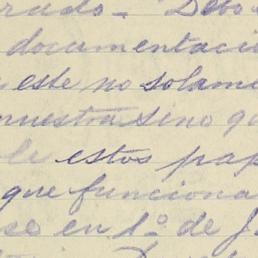 rado - Debo
documentació
este no solame
nuestra sino q
le estos pap
que funciona
se en 1º de J